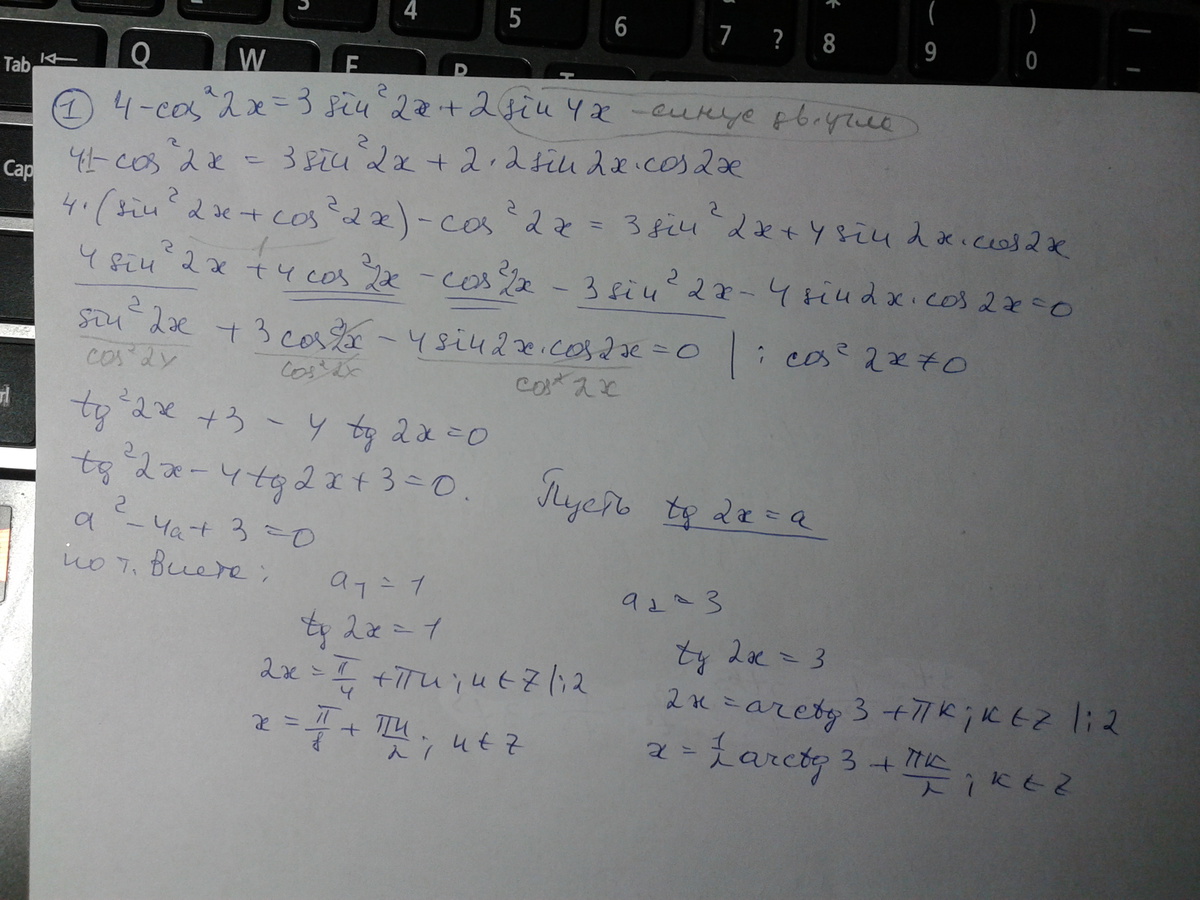 Tab Q W E R T 3 4 5 6 7 ? * 8 ( 9 ) 0 — -
Cap
rl
① 4 - cos² 2x = 3 sin² 2x + 2 sin 4x - синус дв. угла
4·1 - cos² 2x = 3 sin² 2x + 2 · 2 sin 2x · cos 2x
4 · (sin² 2x + cos² 2x) - cos² 2x = 3 sin² 2x + 4 sin 2x · cos 2x
1
4 sin² 2x + 4 cos² 2x - cos² 2x - 3 sin² 2x - 4 sin 2x · cos 2x = 0
sin² 2x + 3 cos² 2x - 4 sin 2x · cos 2x = 0 | : cos² 2x ≠ 0
cos² 2x cos² 2x cos² 2x
tg² 2x + 3 - 4 tg 2x = 0
tg² 2x - 4 tg 2x + 3 = 0. Пусть tg 2x = a
a² - 4a + 3 = 0
по т. Виета: a₁ = 1 a₂ = 3
tg 2x = 1 tg 2x = 3
2x = π/4 + πn; n ∈ Z |:2 2x = arctg 3 + πk; k ∈ Z |:2
x = π/8 + πn/2; n ∈ Z x = 1/2 arctg 3 + πk/2; k ∈ Z